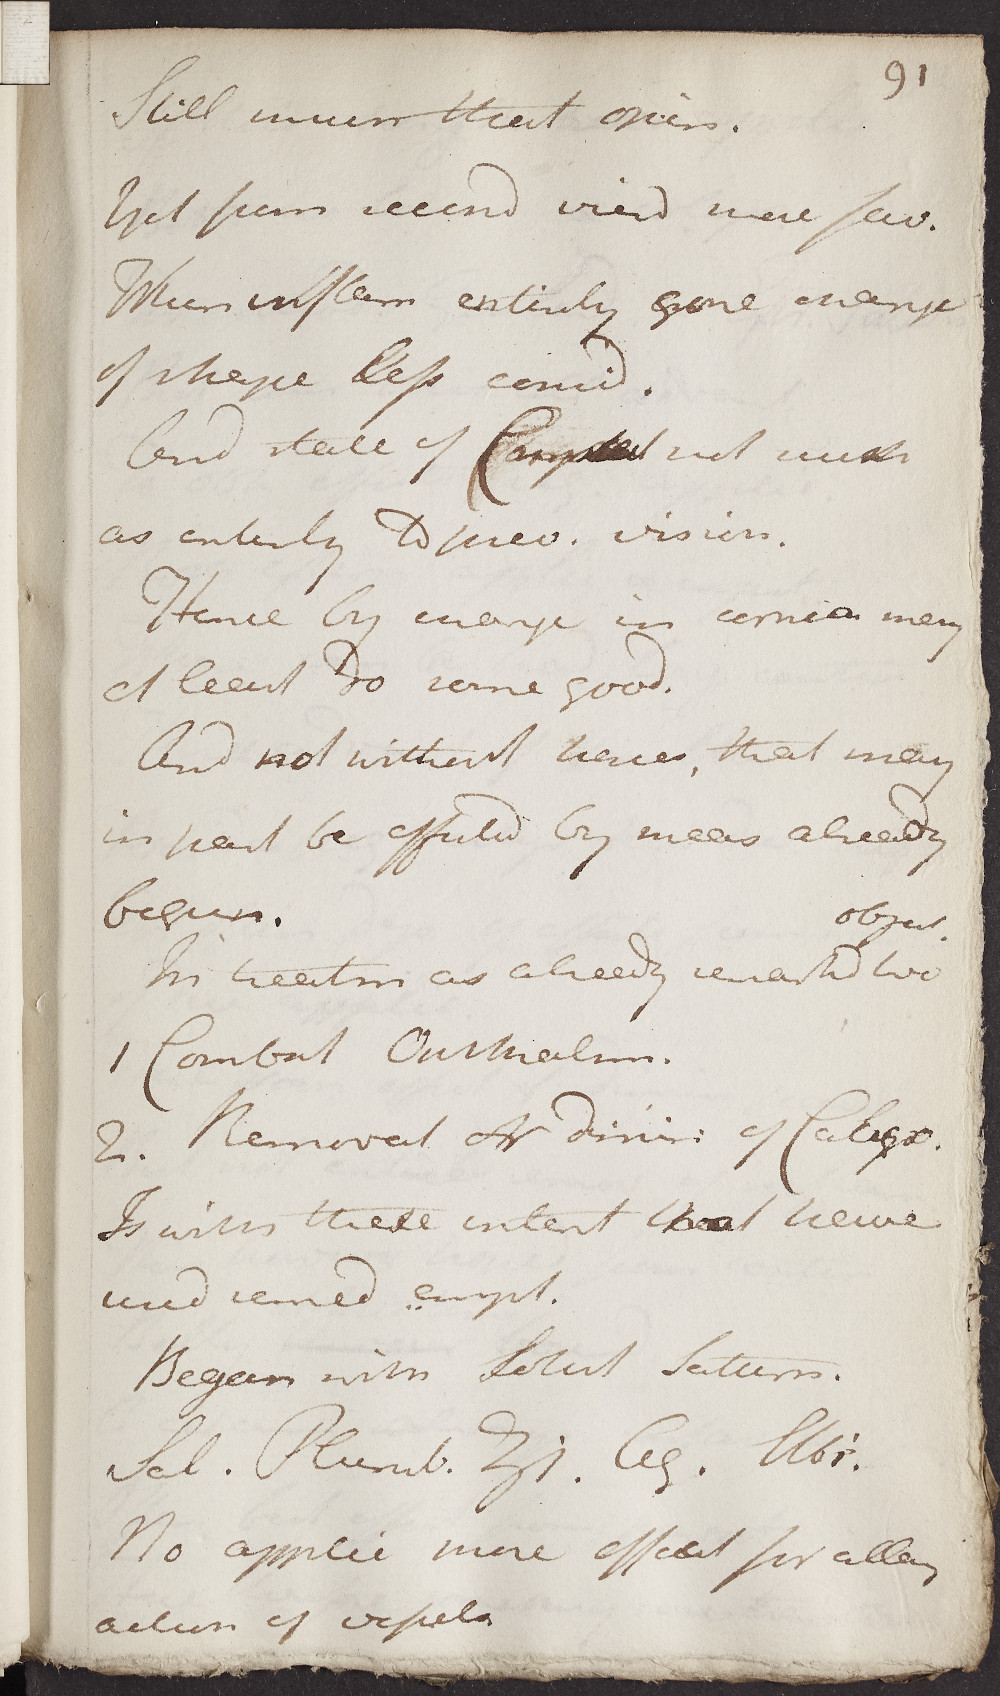 91
Still incurr that opin.
Yet from second view more fav.
When inflam entirely gone change
of shape less consid.
And state of not much
as enterly to prev. vision.
Hence by change in cornea may
at least do some good.
And not without hopes, that may
in part be effected by meas already
begun.
object.
In treatm as already remarkd two
1 Combat Ophthalm.
2. Removal or Dimin: of
Is with these intent that have
used remed empl.
Began with Solut Saturn.
Sal. Plumb. ʒi. Aq. lbi.
No applic more effect for allay
action of vessels